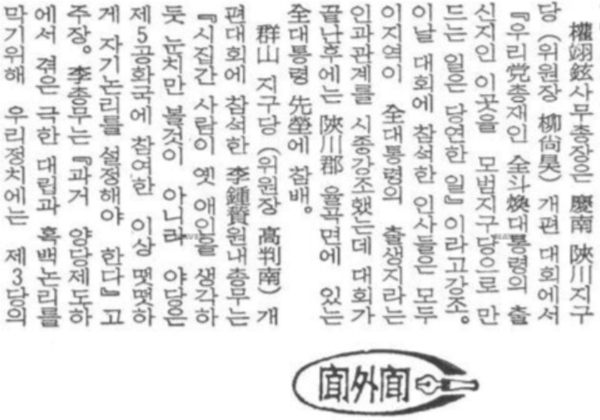 權翊鉉사무총장은 慶南 陜川지구
당 (위원장 柳尙昊) 개편 대회에서
『우리党총재인 全斗煥대통령의 출
신지인 이곳을 모범지구당으로 만
드는 일은 당연한 일』이라고강조。
이날 대회에 참석한 인사들은 모두
이지역이 全대통령의 출생지라는
인과관계를 시종강조했는데 대회가
끝난후에는 陜川郡 율곡면에 있는
全대통령 先塋에 참배。
群山 지구당 (위원장 高判南) 개
편대회에 참석한 李鍾贊원내총무는
『시집간 사람이 옛 애인을 생각하
듯 눈치만 볼것이 아니라 야당은
제5공화국에 참여한 이상 떳떳하
게 자기논리를 설정해야 한다』고
주장。 李총무는 『과거 양당제도하
에서 겪은 극한 대립과 흑백논리를
막기위해 우리정치에는 제3당의
聞外聞